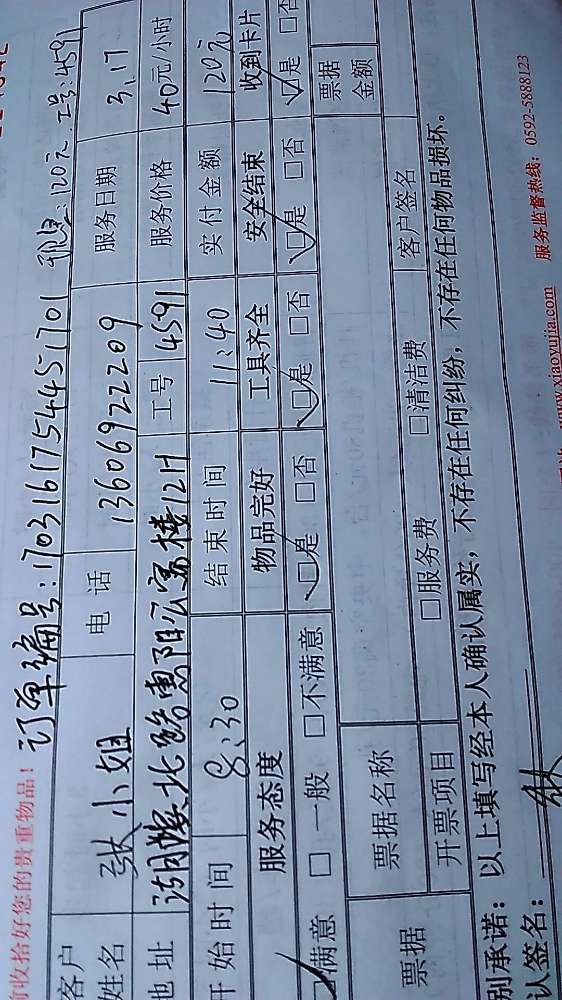 收拾好您的贵重物品！ 订单编号：1703161754451701 现金：120元 工号：4591
客户姓名 张小姐 电话 13606922209 服务日期 3.17
地址 湖滨北路惠阳公寓楼12H 工号 4591 服务价格 40元/小时
开始时间 8:30 结束时间 11:40 实付金额 120元
服务态度 物品完好 工具齐全 安全结束 收到卡片
满意 □一般 □不满意 □是 □否 □是 □否 □是 □否 □是 □否
票据 票据名称 票据金额
开票项目 □服务费 □清洁费 客户签名
别承诺：以上填写经本人确认属实，不存在任何纠纷，不存在任何物品损坏。
认签名：张
www.xiaoyujia.com 服务监督热线：0592-5888123